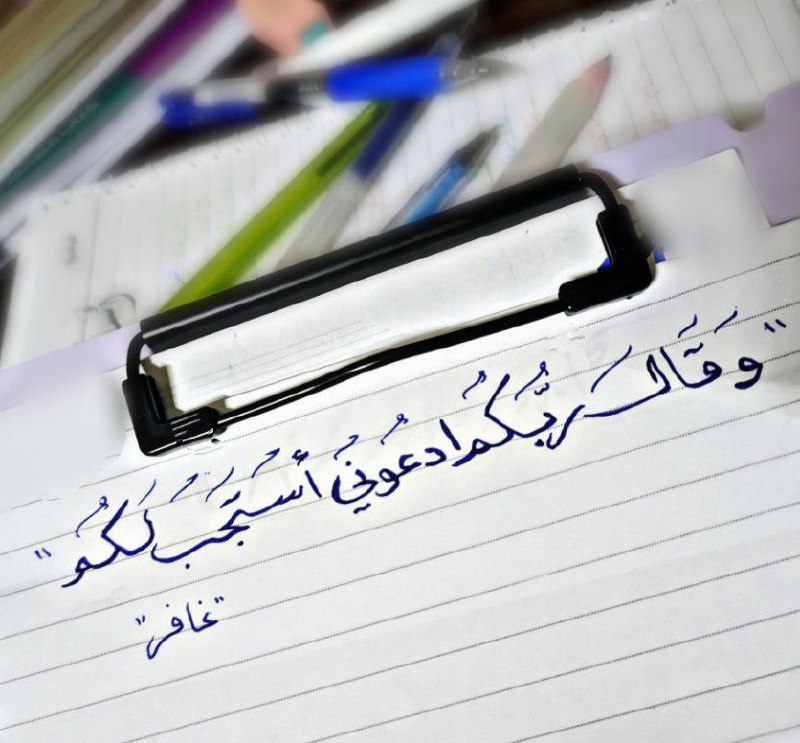 "وَقَالَ رَبُّكُمُ ادْعُونِي أَسْتَجِبْ لَكُمْ"
"غافر"